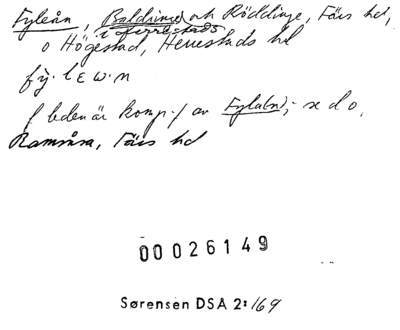 Fyleån, Baldringe och Röddinge, Färs hd,
i Herrestads
o Högestad, Herrestads hd
fy·lɛw·n
f leden är komp. / av Fyla(n);- x d o.
Ramsåsa, Färs hd
00026149
Sørensen DSA 2:169